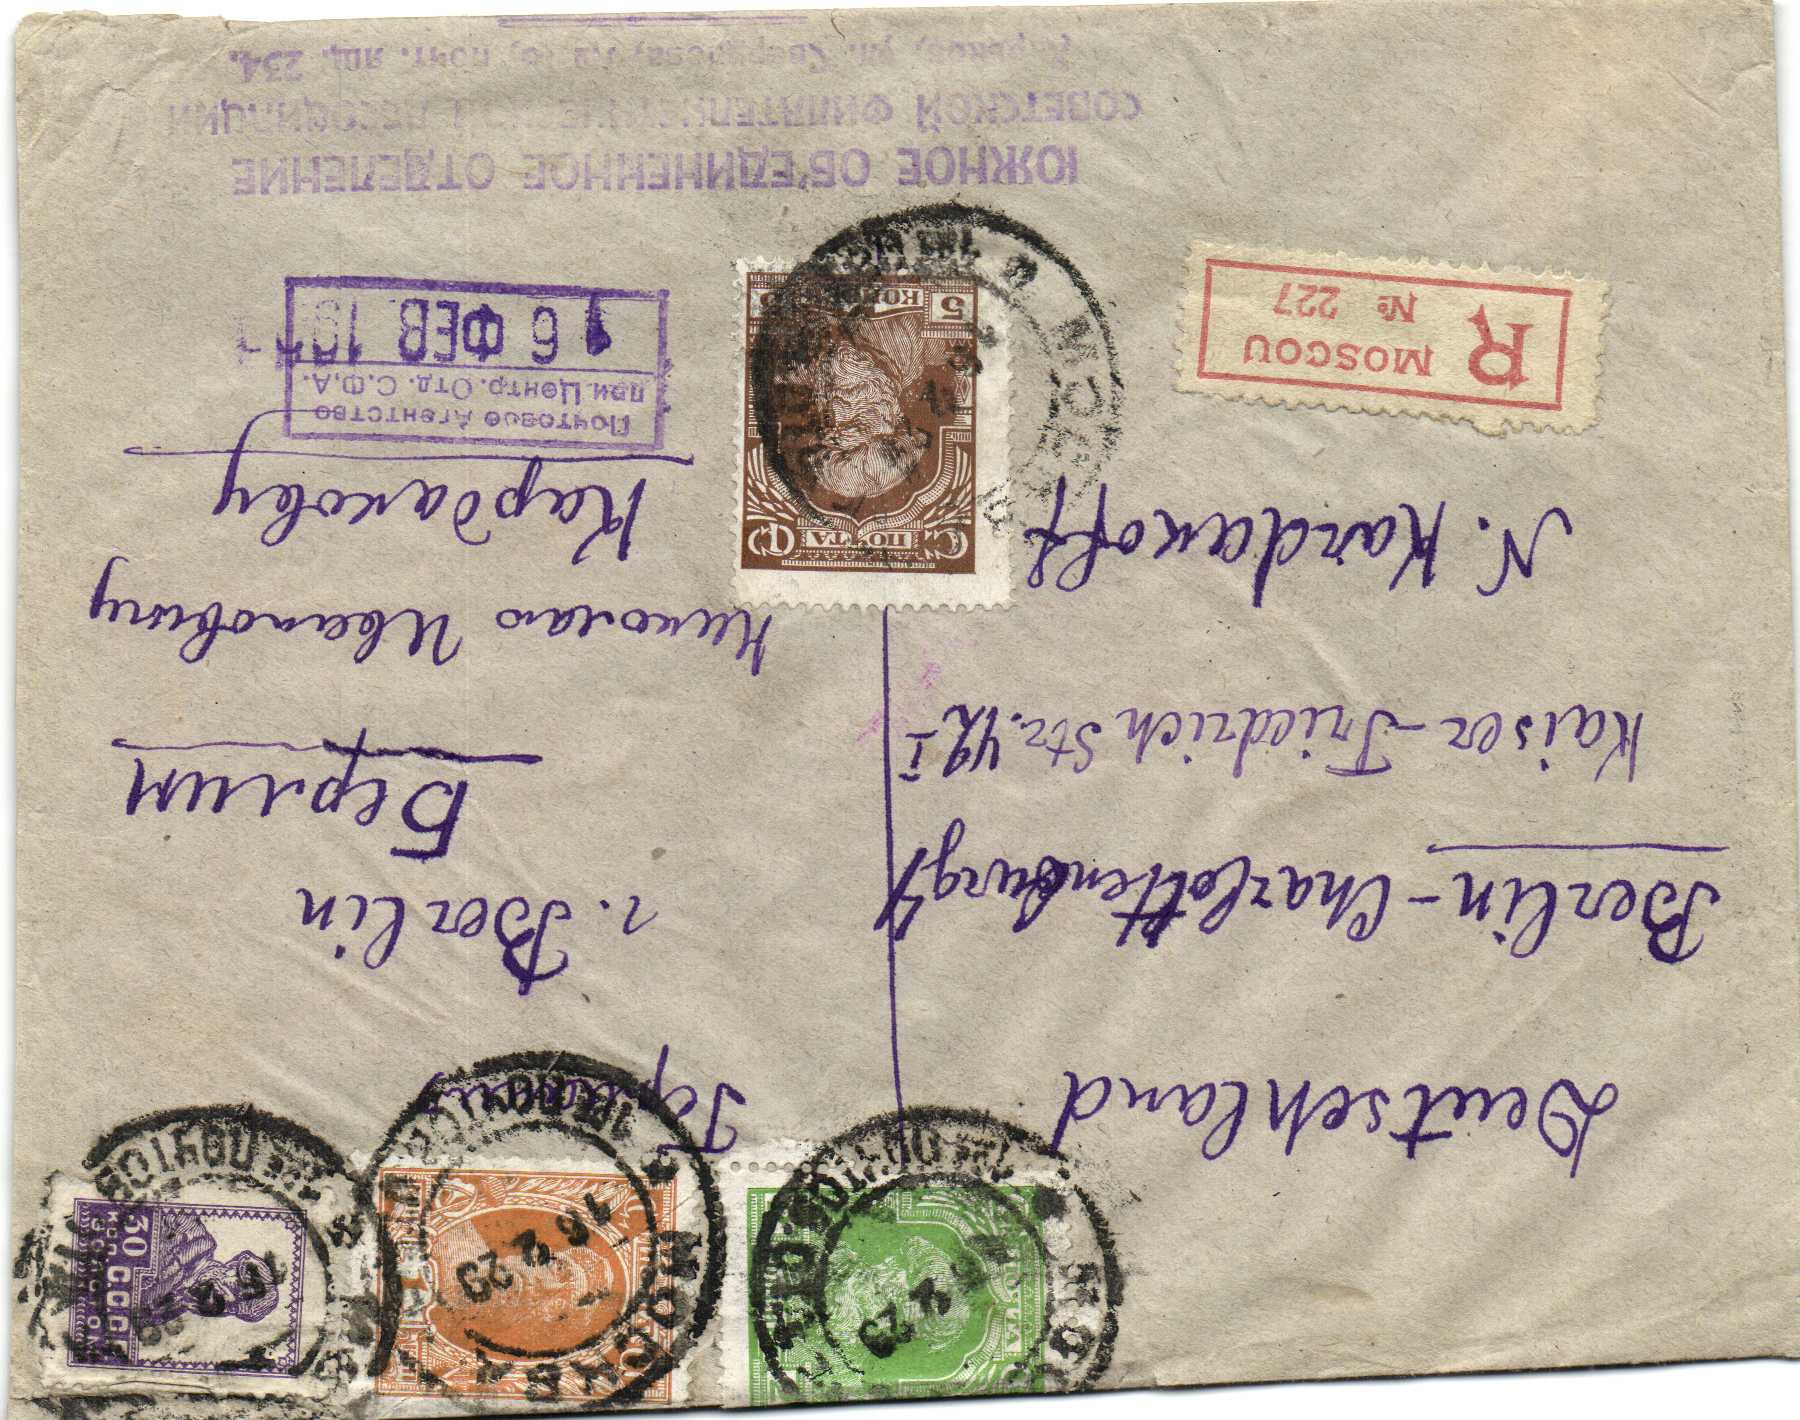 Deutschland
Berlin-Charlottenburg
Kaiser-Friedrich Str. 42 I
N. Kardakoff
Германия
г. Berlin
Берлин
Николаю Ивановичу
Кардакову
R MOSCOU
№ 227
Почтовое Агентство
при Центр. Отд. С.Ф.А.
16 ФЕВ
ЮЖНОЕ ОБ'ЕДИНЕННОЕ ОТДЕЛЕНИЕ
СОВЕТСКОЙ ФИЛАТЕЛИСТИЧЕСКОЙ АССОЦИАЦИИ
Харьков, ул. Свердлова, № 6, почт. ящ. 234.
ПОЧТА
5
30 КОП
СССР
ЗОЛОТОМ
МОСКВА
16 2 29
МОСКВА
16 2 29
ПОЧТА